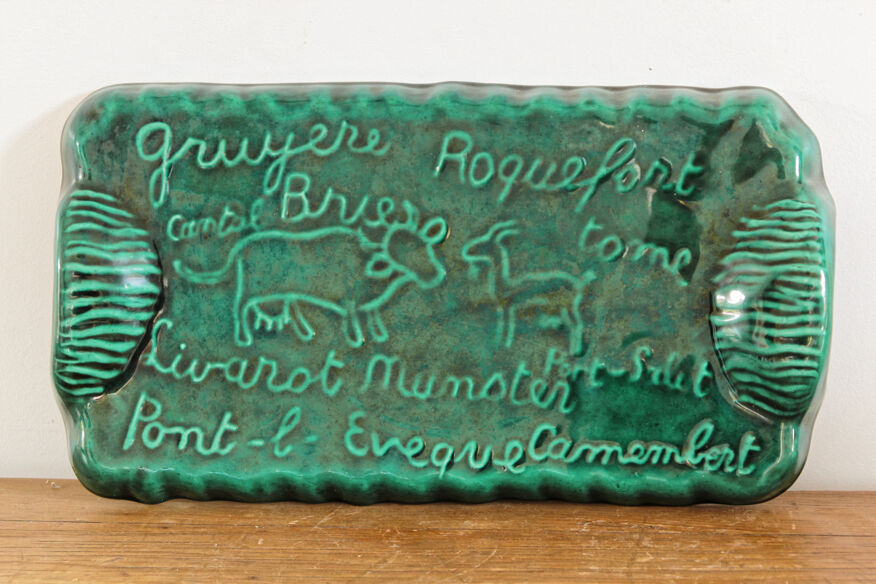 gruyere Roquefort
Cantal Brie tome
Livarot Munster Port-Salut
Pont-l-Eveque Camembert